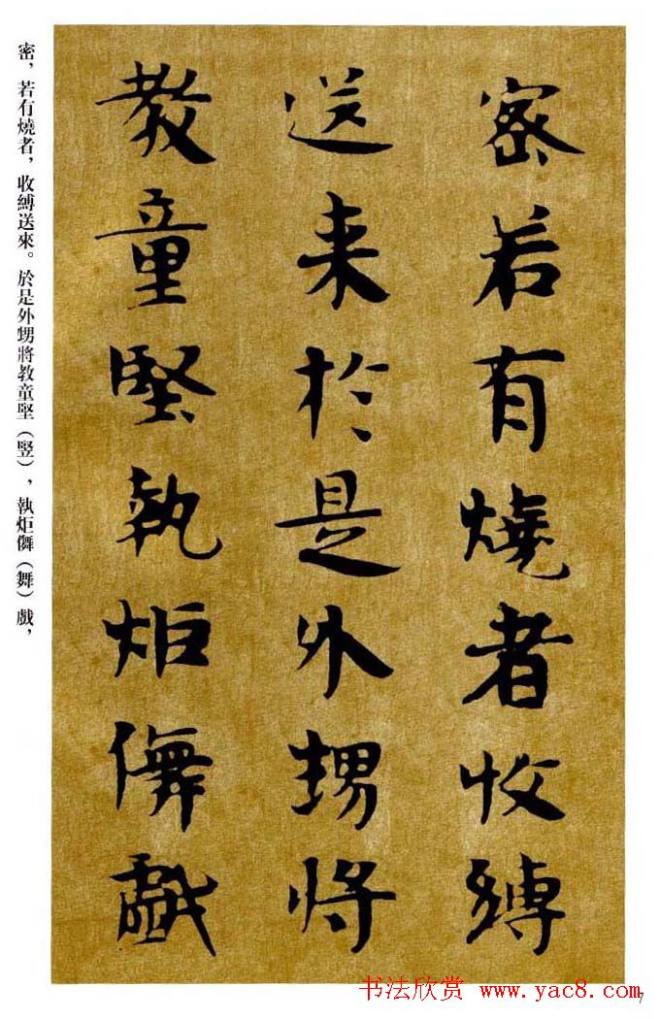 密若有燒者收縛
送来於是外甥將
教童堅執炬儛戲
密，若有燒者，收縛送來。於是外甥將教童堅（豎），執炬儛（舞）戲，
书法欣赏 www.yac8.com
7